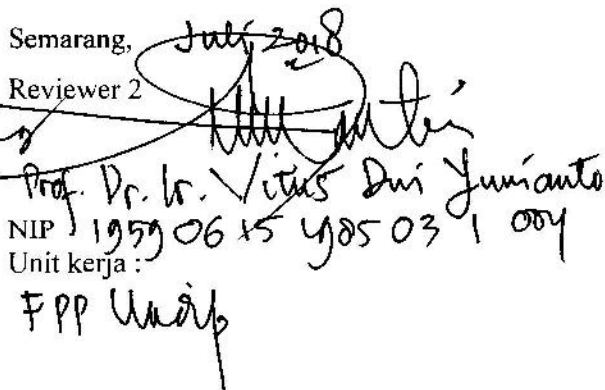 Semarang, Juli 2018
Reviewer 2
Prof. Dr. Ir. Vitus Dwi Yunianto
NIP 19590615 198503 1 004
Unit kerja :
FPP Undip